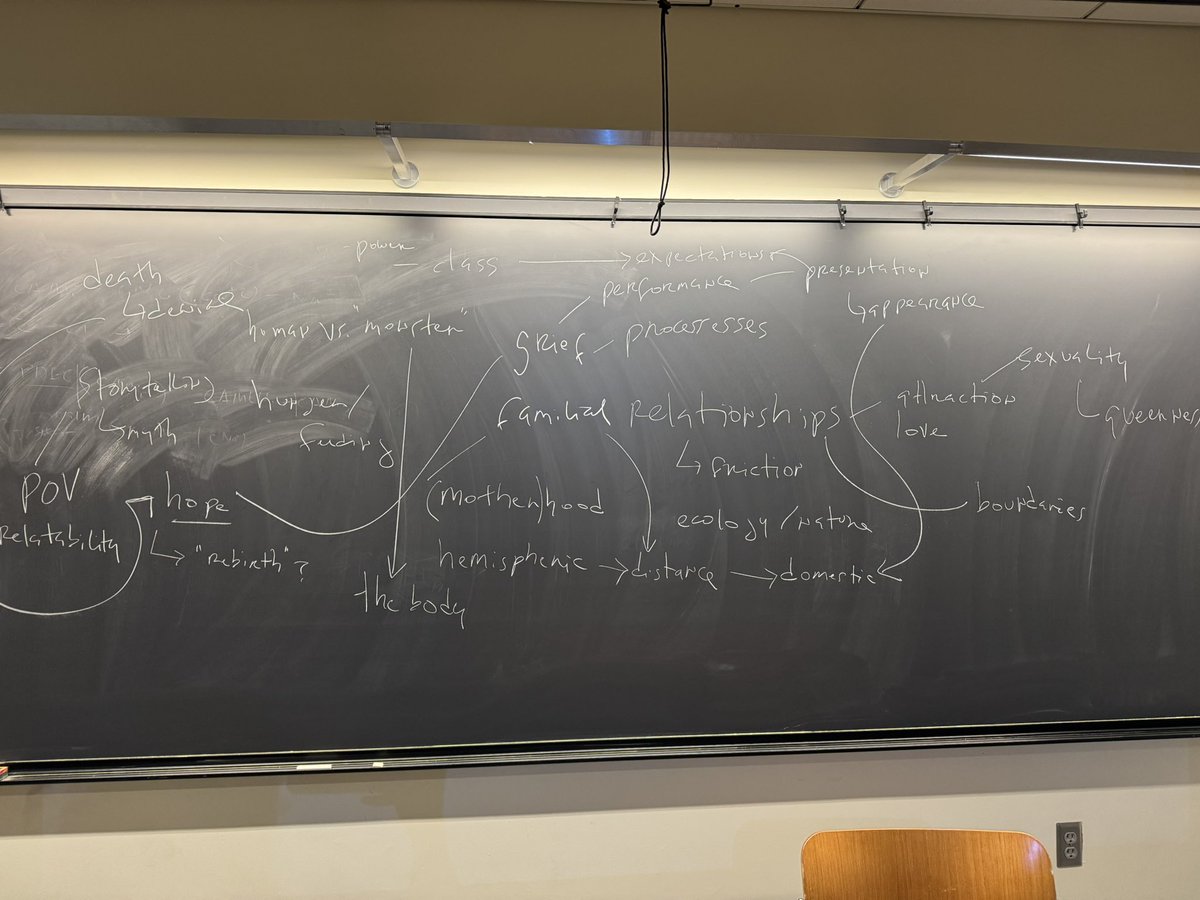 - power
death
↳denial
— class ⟶ expectations
performance — presentation
↳appearance
human vs. "monster"
grief – processes
sexuality
queerness
storytelling
↳myth
hunger/
feeding
familial Relationships
↳ friction
attraction
love
POV
Relatability
hope
↳ "Rebirth"?
(mother)hood
ecology/nature
boundaries
hemispheric → distance → domestic
the body